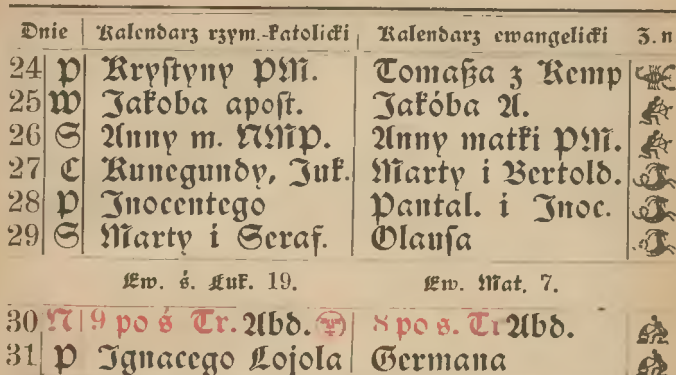 Dnie Kalendarz rzym.-katolicki Kalendarz ewangelicki Z. n
24 P Kryſtyny PM. Tomaßa z Kemp
25 W Jakoba apoſt. Jakóba A.
26 S Anny m. NMP. Anny matki PM.
27 C Kunegundy, Juk. Marty i Bertold.
28 P Inocentego Pantal. i Inoc.
29 S Marty i Seraf. Olauſa
Ew. ś. Łuk. 19. Ew. Mat. 7.
30 N 9 po ś Tr. Abd. 8 po s. Tr Abd.
31 P Ignacego Lojola Germana